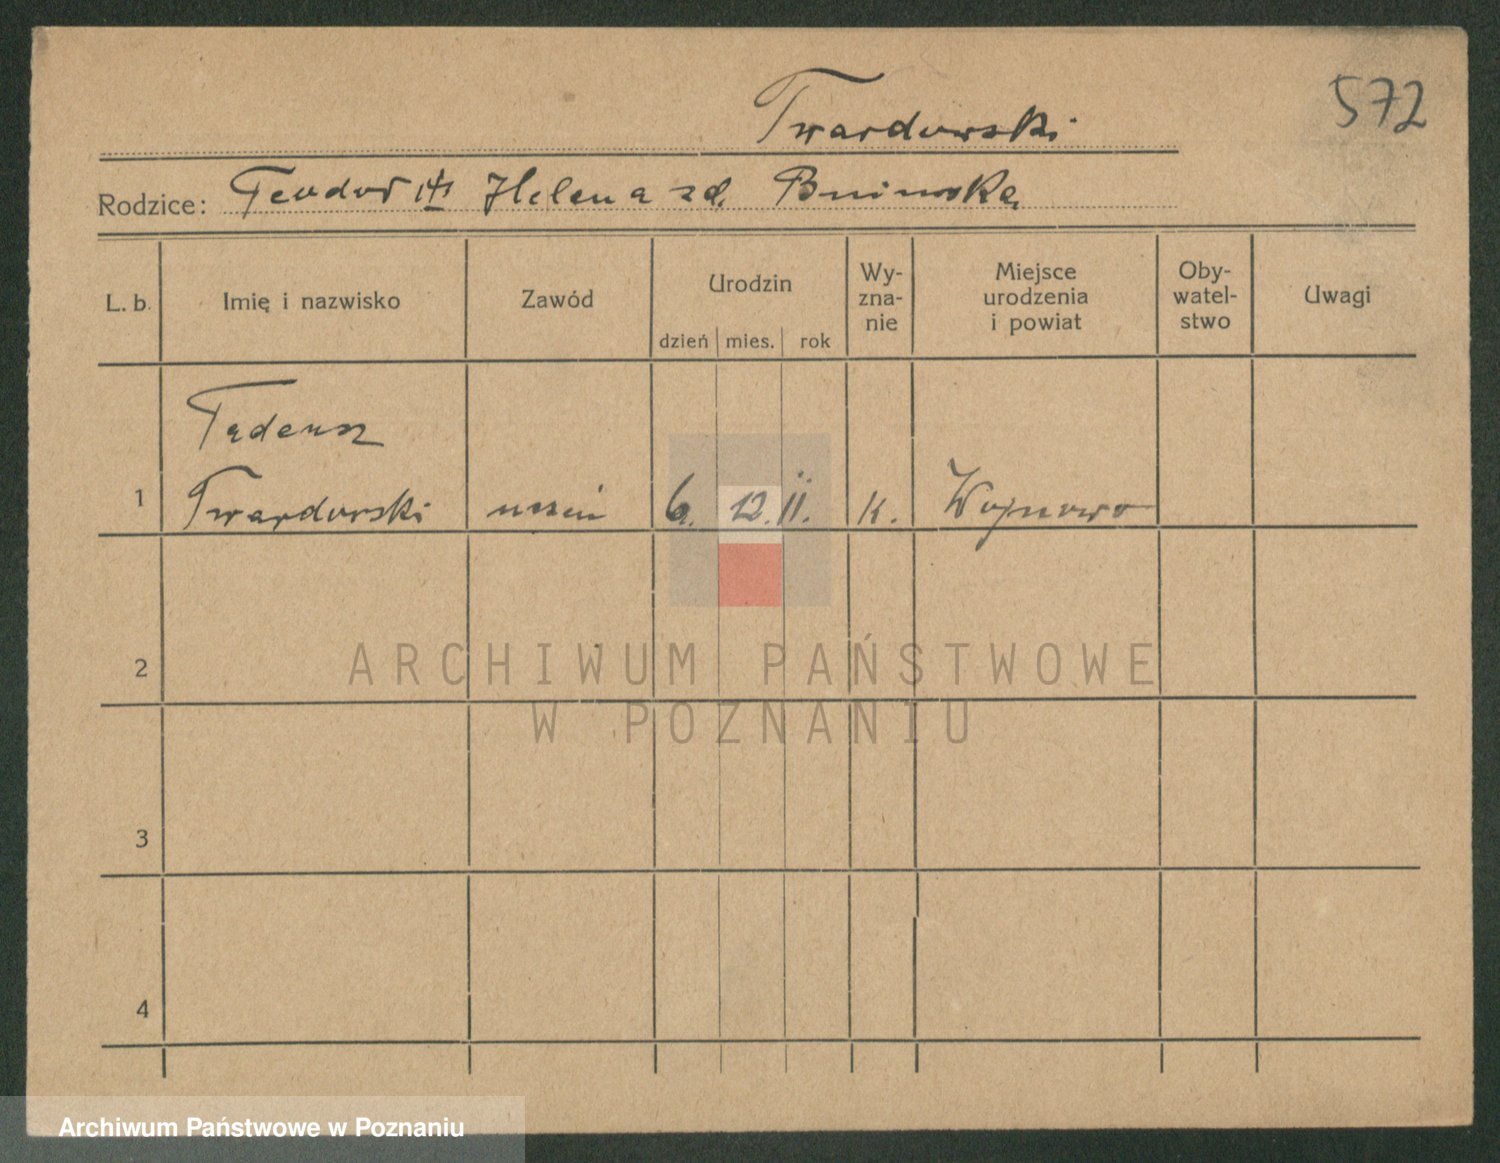 572
Twardowski
Rodzice: Teodor i Helena zd. Bnińska
L. b. Imię i nazwisko Zawód Urodzin dzień mies. rok Wy-zna-nie Miejsce urodzenia i powiat Oby-watel-stwo Uwagi
Tadeusz
1 Twardowski uczeń 6. 12. 11. k. Wojnowo
2
ARCHIWUM PAŃSTWOWE
W POZNANIU
3
4
Archiwum Państwowe w Poznaniu